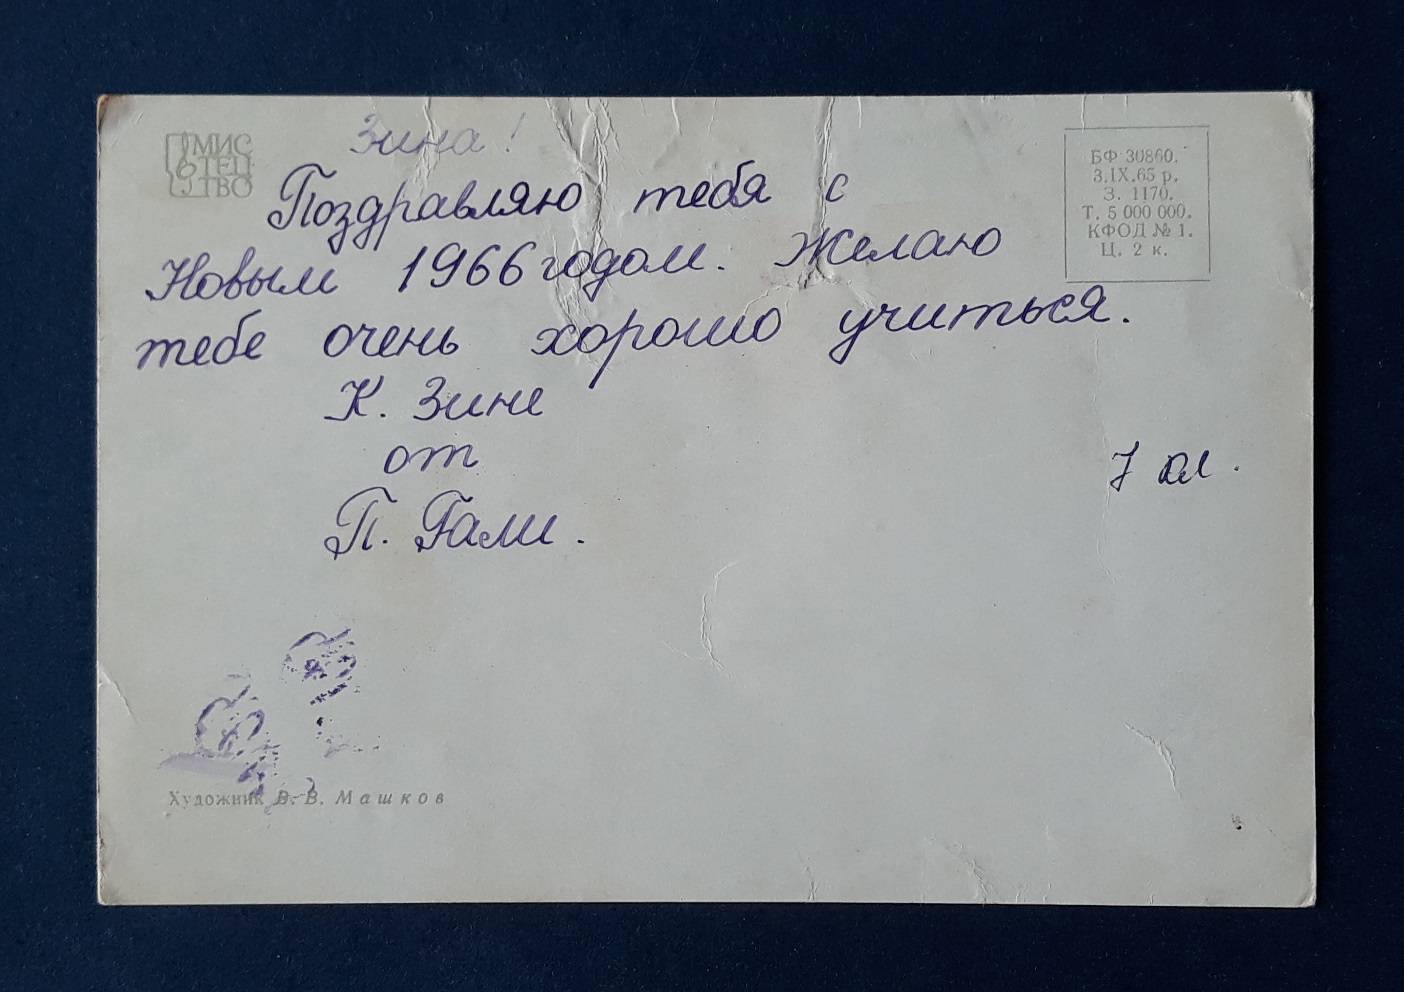 МИС
ТЕЦ
ТВО
Зина!
Поздравляю тебя с
Новым 1966 годом. Желаю
тебе очень хорошо учиться.
К. Зине
от
П. Гали.
БФ 30860.
3.IX.65 р.
З. 1170.
Т. 5 000 000.
КФОД № 1.
Ц. 2 к.
7
Художник В. В. Машков